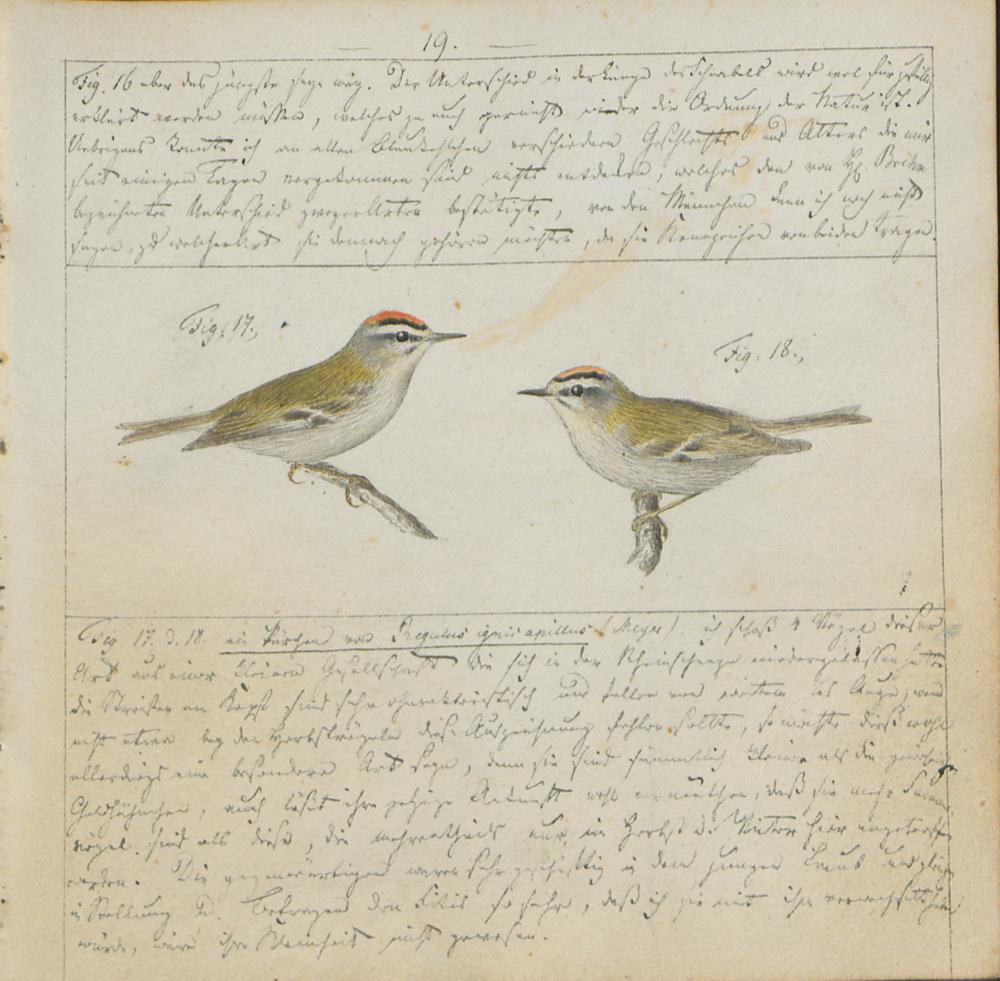 19.
Fig. 16 aber das jüngste seye mag. Der Unterschied in der Länge des Schnabels wird wol für zufällig
erklärt werden müssen, welches ja auch gar nicht wieder die Ordnung der Natur ist.
Uebrigens konnte ich an allen Blaukehlchen verschiedenen Geschlechts und Alters die mir
seit einigen Tagen vorgekommen sind nichts entdecken, welches den von H. Brehm
bezeichneten Unterschied zweyer Arten bestätigte, von den Männchen kann ich noch nicht
sagen, zu welcher Art sie demnach gehören möchten, da sie Kennzeichen von beiden tragen.
Fig. 17.
Fig. 18.
Fig. 17. u. 18. ein Pärchen von Regulus ignicapillus (Meyer) ich schoß 4 Vögel dieser
Art aus einer kleinen Gesellschaft die sich in der Rheinschanze niedergelassen hatte
die Streifen am Kopf sind sehr charakteristisch und fallen von weitem ins Auge, wenn
nicht etwa bey den Herbstvögeln diese Auszeichnung fehlen sollte, so möchte dieß wohl
allerdings eine besondere Art seyn, denn sie sind sämmtlich kleiner als die
Goldhähnchen, auch läßt ihre jetzige Ankunft wohl vermuthen, daß sie mehr
vögel sind als diese, die mehrentheils nur im Herbst u. Winter hier angetroffen
werden. Die gegenwärtigen waren sehr geschäftig in dem jungen Laub und
in Stellung u. Betragen dem Fitis so sehr, daß ich sie mit ihm verwechselt haben
würde, wäre ihre Kleinheit nicht gewesen.